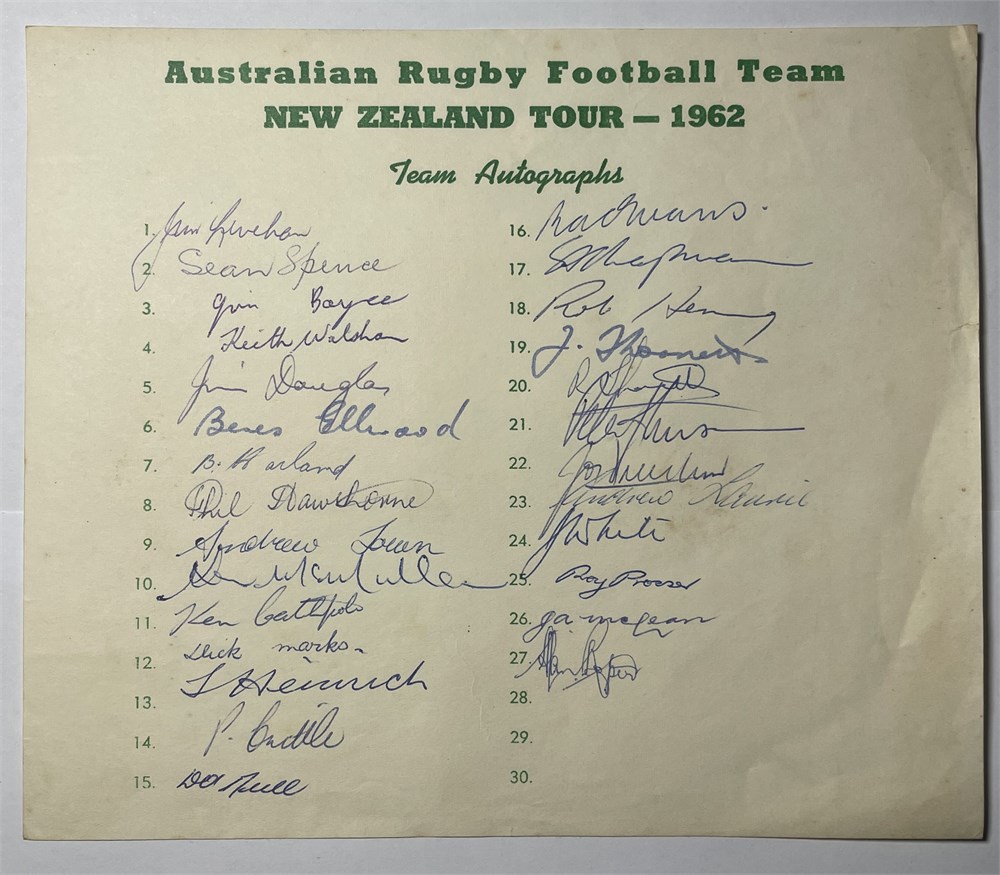 Australian Rugby Football Team
NEW ZEALAND TOUR — 1962
Team Autographs
1. Jim Lenehan
2. Sean Spence
3. Jim Boyce
4. Keith Walsham
5. Jim Douglas
6. Beres Ellwood
7. B. Harland
8. Phil Hawthorne
9. Andrew Town
10. Don McMullen
11. Ken Catchpole
12. Dick marks.
13. E Heinrich
14. P. Crittle
15.
16.
17. Chapman
18. Rob Heming
19. J. Thornett
20. R Thornett
21. Peter Johnson
22. Jon
23. Andrew Laurie
24. J White
25. Roy Prosser
26. ga mcgean
27.
28.
29.
30.